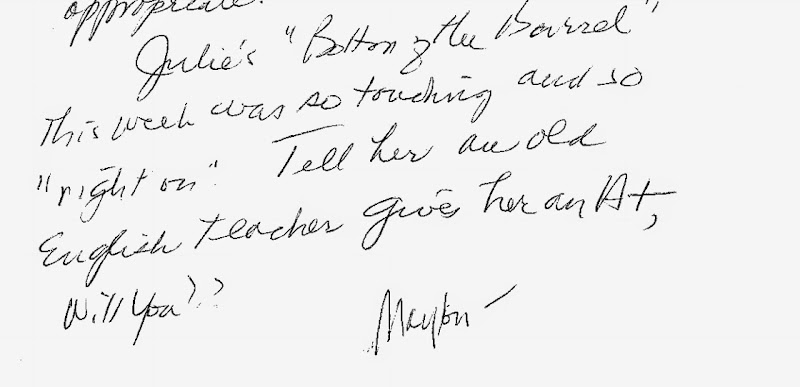 appropriate.
Julie's "Bottom of the Barrel"
this week was so touching and so
"right on". Tell her an old
English teacher gives her an A+,
Will you??